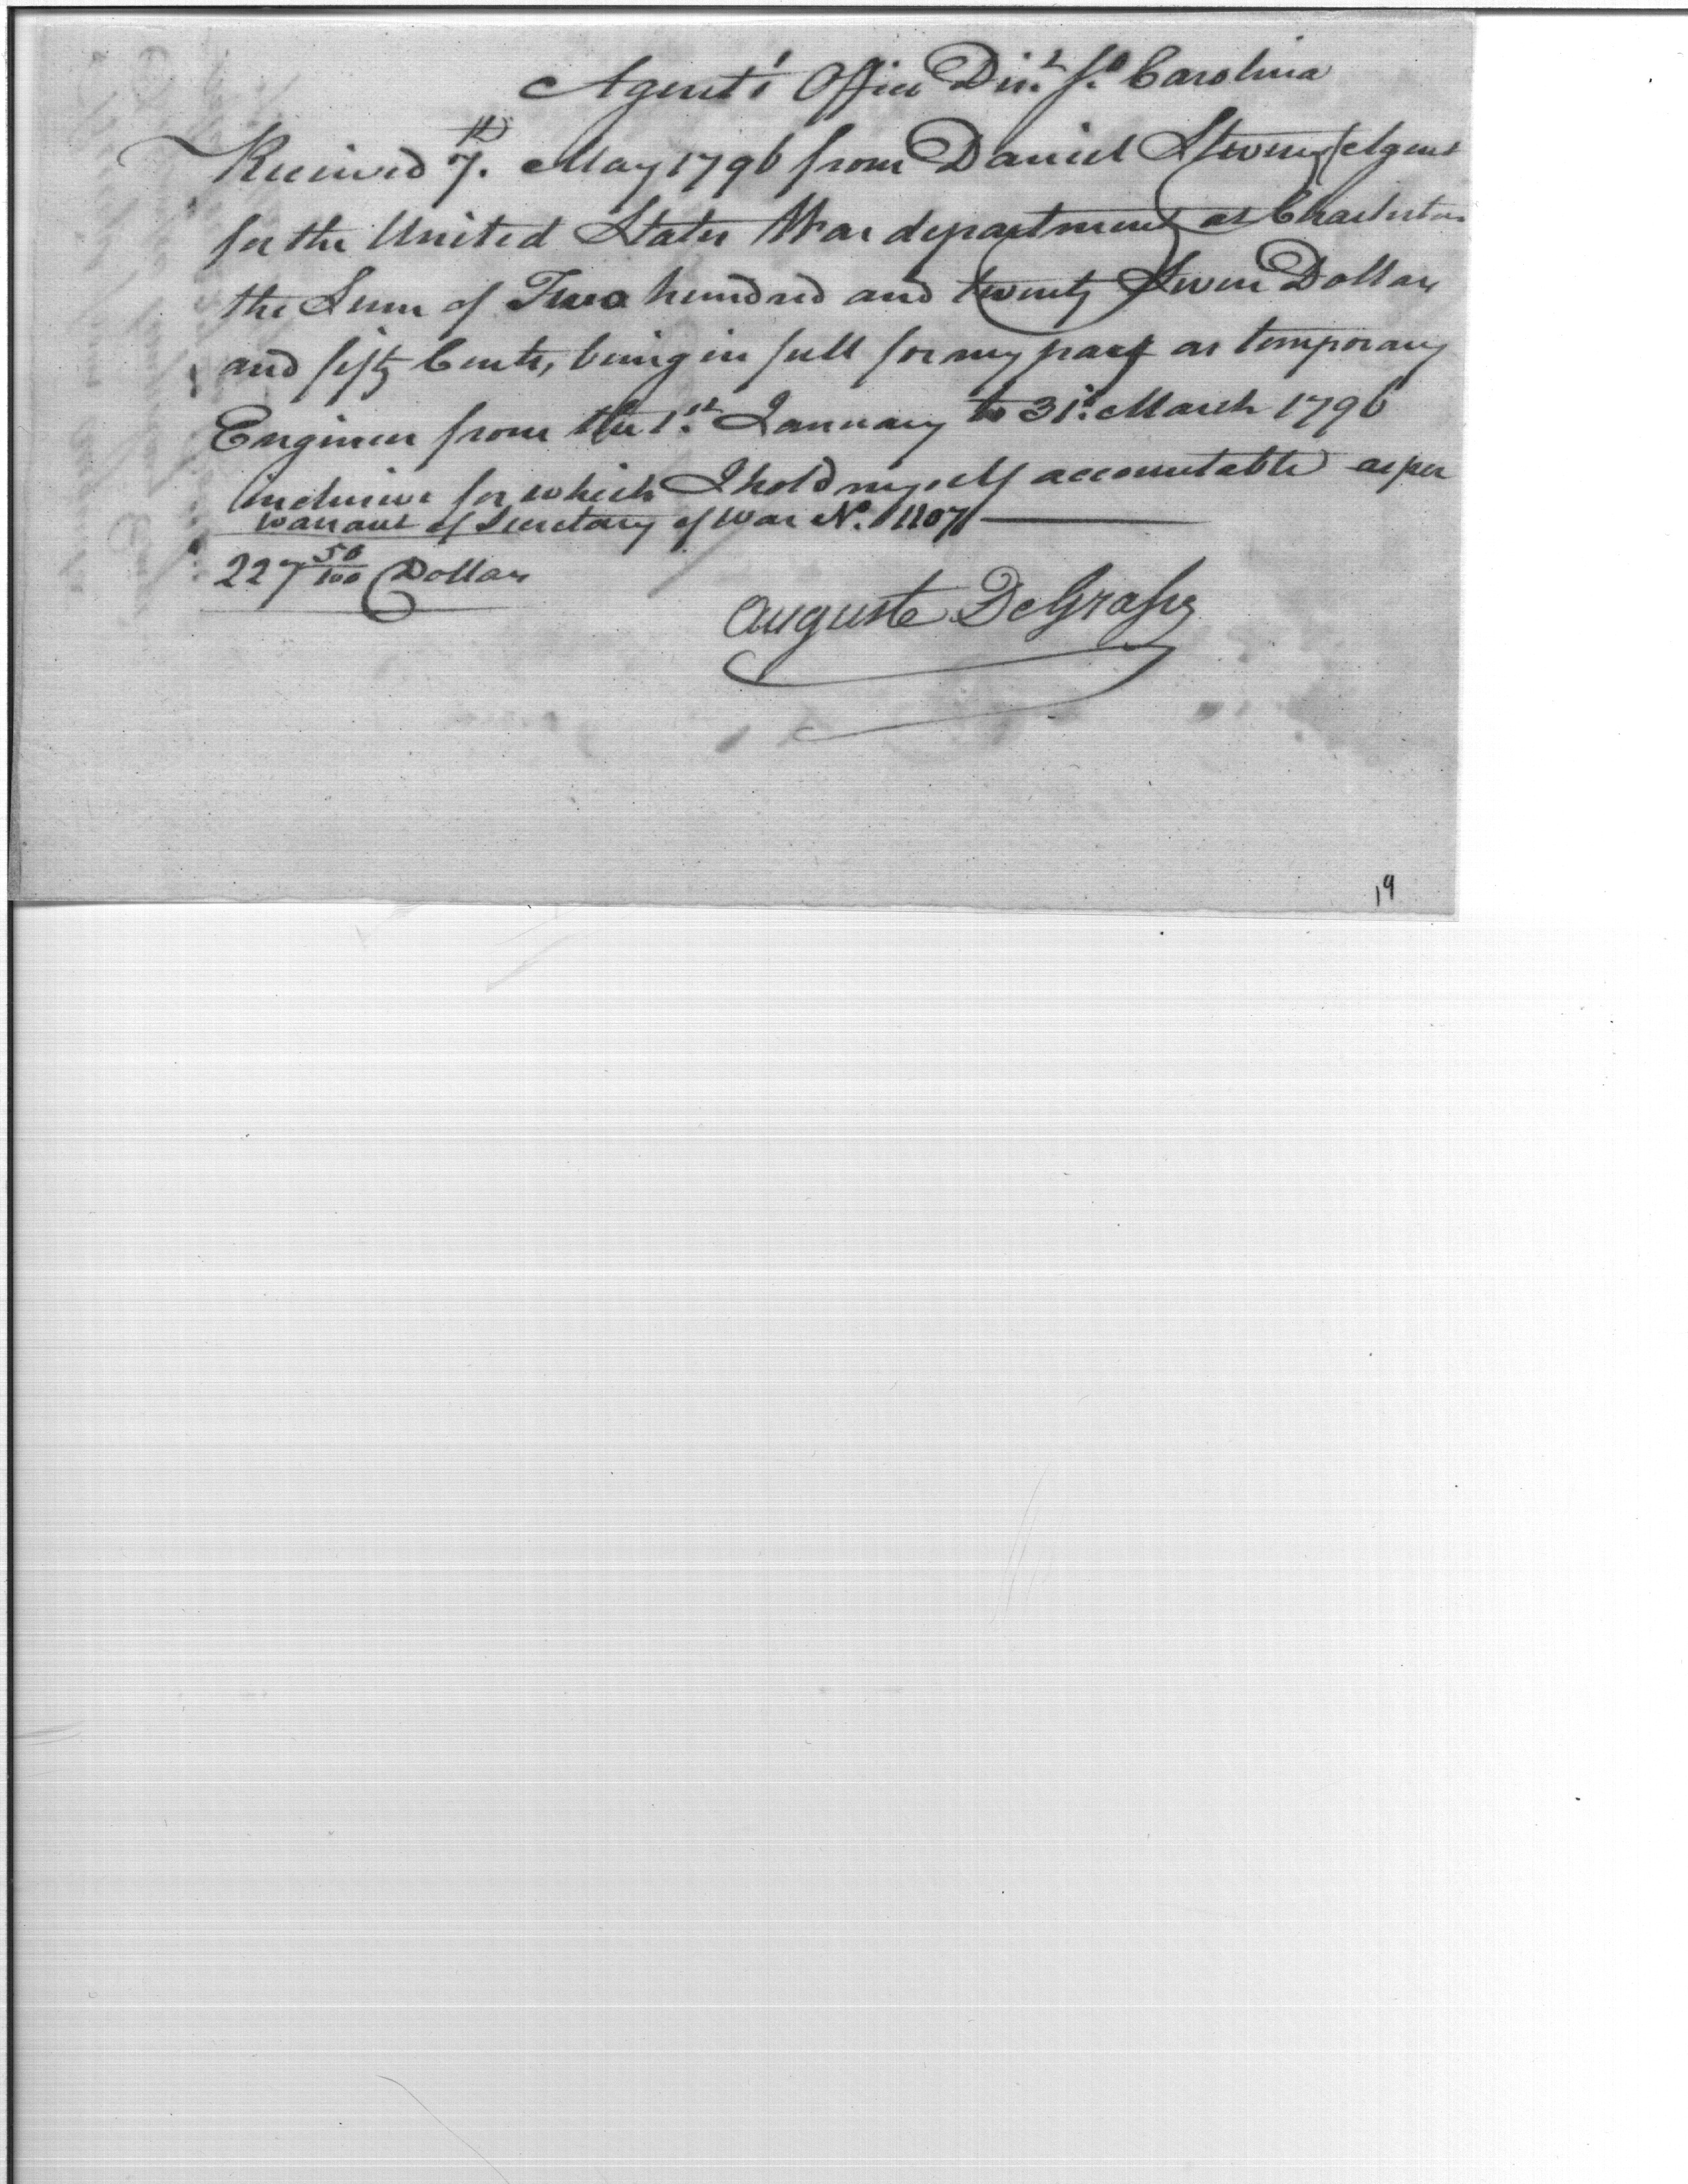 Agent's Office Dist. So. Carolina
Received 7th. May 1796 from Daniel Stevens Agent
for the United States War department at Charleston
the Sum of Two hundred and twenty Seven Dollars
and fifty Cents, being in full for my pay as temporary
Engineer from the 1st. January to 31st. March 1796
inclusive for which I hold myself accountable as per
warrant of Secretary of War No. 1107
227 50/100 Dollars
Auguste DeGrasse
19